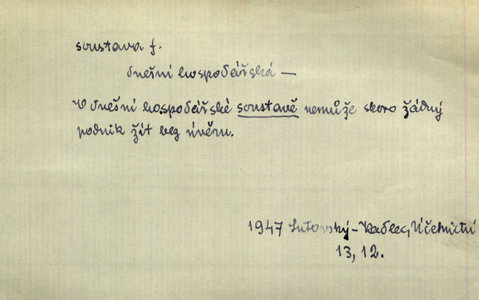 soustava f.
dnešní hospodářská —
V dnešní hospodářské soustavě nemůže skoro žádný
podnik žít bez úvěru.
1947 Lutovský-Kadlec, Účetnictví
13, 12.